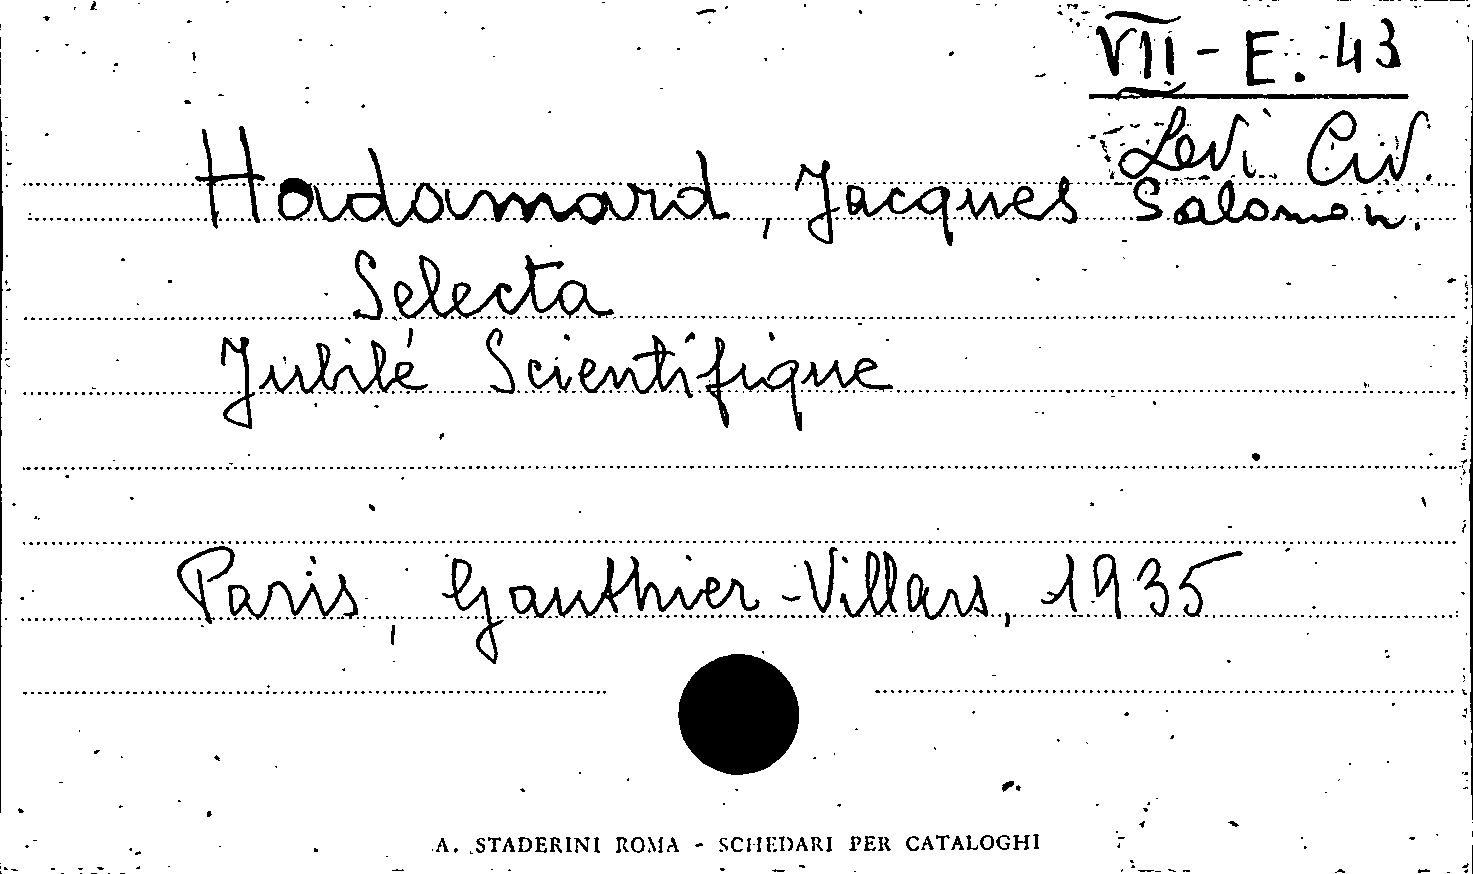 VII - E. 43
Levi Civ.
Hadamard, Jacques Salomon.
Selecta
Jubilé Scientifique
Paris, Gauthier-Villars, 1935
A. STADERINI ROMA - SCHEDARI PER CATALOGHI